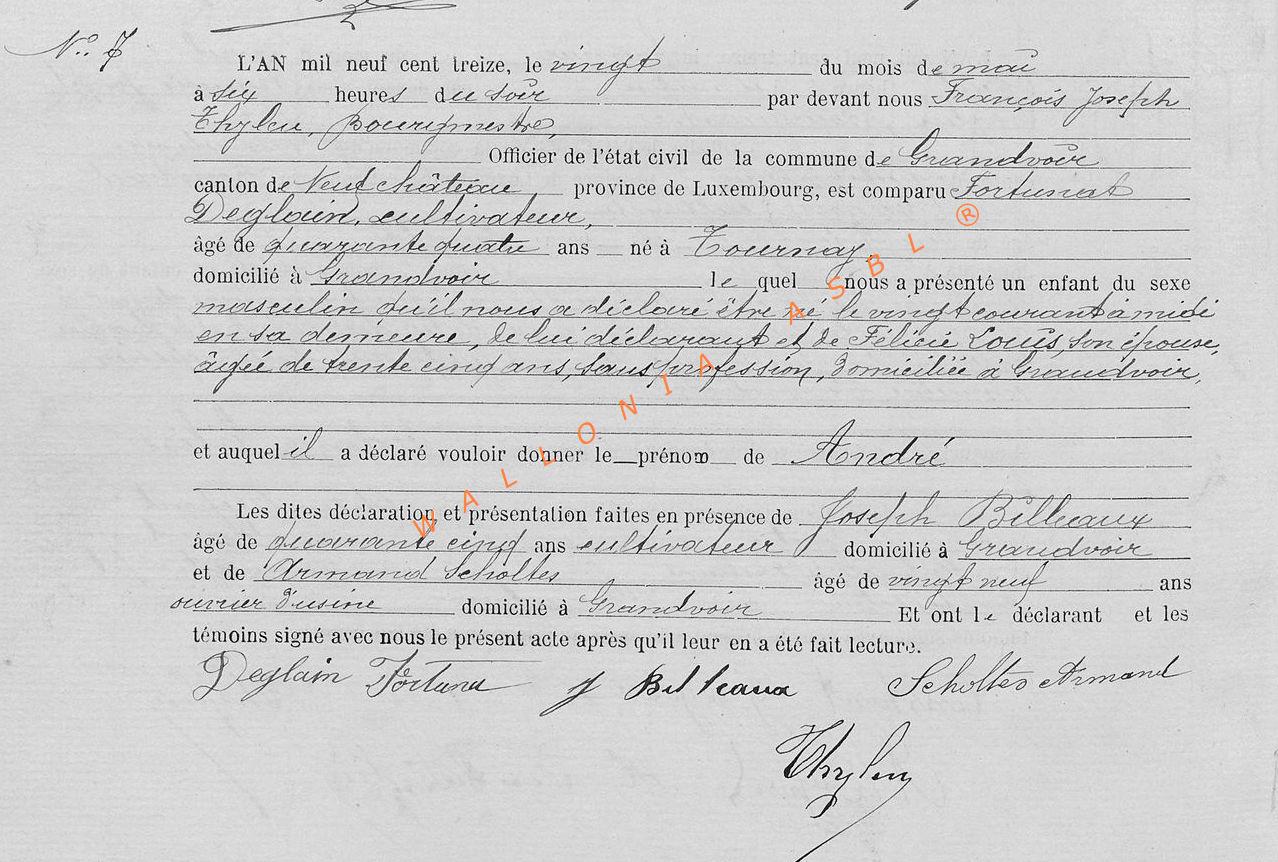 N° 7
L'AN mil neuf cent treize, le vingt du mois de mai
à six heures du soir par devant nous François Joseph
Thyleu, Bourgmestre,
Officier de l'état civil de la commune de Grandvoir
canton de Neufchâteau, province de Luxembourg, est comparu Fortunat
Deglain, cultivateur,
âgé de quarante quatre ans né à Tournay,
domicilié à Grandvoir le quel nous a présenté un enfant du sexe
masculin qu'il nous a déclaré être né le vingt courant à midi
en sa demeure, de lui déclarant et de Félicie Louis, son épouse,
âgée de trente cinq ans, sans profession, domiciliée à Grandvoir,
et auquel il a déclaré vouloir donner le prénom de André
Les dites déclaration et présentation faites en présence de Joseph Billeaux
âgé de quarante cinq ans cultivateur domicilié à Grandvoir
et de Armand Scholtes âgé de vingt neuf ans
ouvrier d'usine domicilié à Grandvoir Et ont le déclarant et les
témoins signé avec nous le présent acte après qu'il leur en a été fait lecture.
Deglain Fortuna J Billeaux Scholtes Armand
Thyleu
WALLONIA ASBL ®